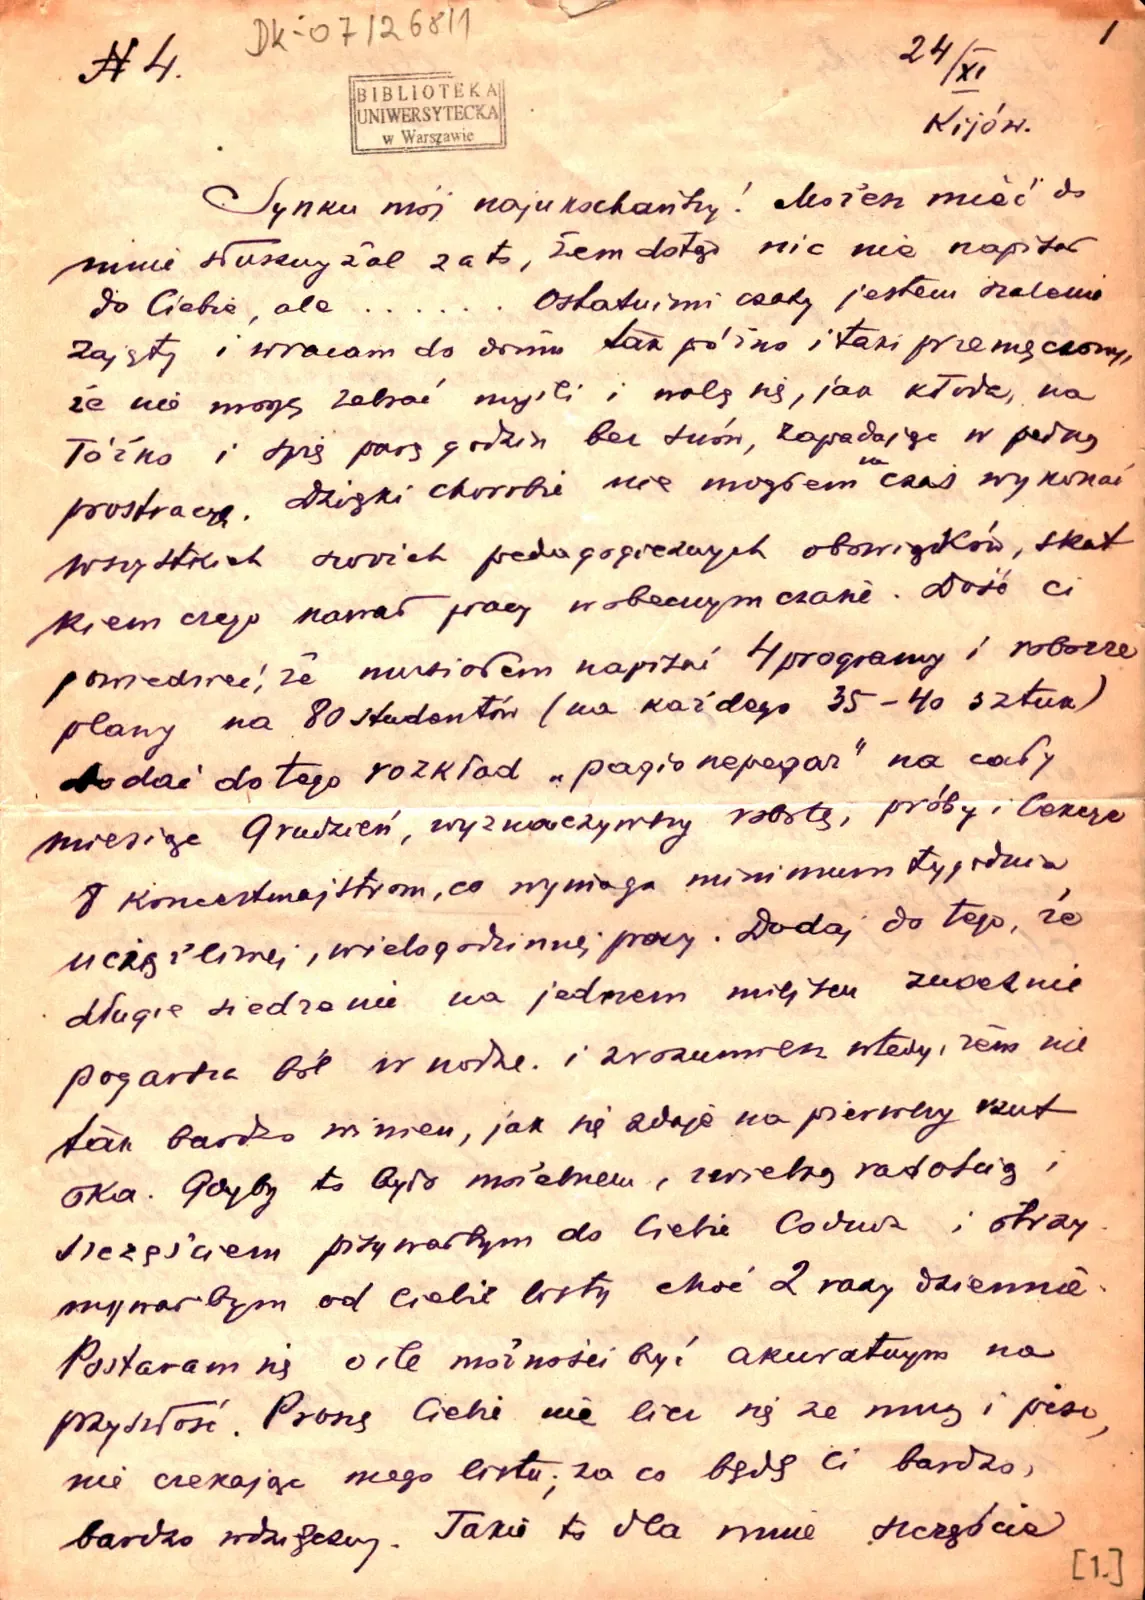 Dk-07/268/1
1
N 4.
24/XI
Kijów.
BIBLIOTEKA
UNIWERSYTECKA
w Warszawie
Synku mój najukochańszy! Możesz mieć do
mnie słuszny żal za to, żem dotąd nic nie napisał
do Ciebie, ale . . . . . . Ostatnimi czasy jestem szalenie
zajęty i wracam do domu tak późno i taki przemęczony,
że nie mogę zebrać myśli i walę się, jak kłoda, na
łóżko i śpię parę godzin bez snów, zapadając w pełną
prostrację. Dzięki chorobie nie mogłem na czas wykonać
wszystkich swoich pedagogicznych obowiązków, skut
kiem czego nawał pracy w obecnym czasie. Dość ci
powiedzieć, że musiałem napisać 4 programy i robocze
plany na 80 studentów (na każdego 35-40 sztuk)
dodać do tego rozkład „радіопередач" na cały
miesiąc Grudzień, wyznaczywszy robotę, próby i lekcje
8 koncertmajstrom, co wymaga minimum tygodnia
uciążliwej, wielogodzinnej pracy. Dodaj do tego, że
długie siedzenie na jednem miejscu znacznie
pogarsza ból w nodze. i zrozumiesz wtedy, żem nie
tak bardzo winien, jak się zdaje na pierwszy rzut
oka. Gdyby to było możebnem, z wielką radością i
szczęściem pisywałbym do Ciebie codzień i otrzy-
mywałbym od Ciebie listy choć 2 razy dziennie.
Postaram się o ile możności być akuratnym na
przyszłość. Proszę Ciebie nie licz się ze mną i pisz,
nie czekając mego listu, za co będę Ci bardzo,
bardzo wdzięczny. Takie to dla mnie szczęście
[1.]